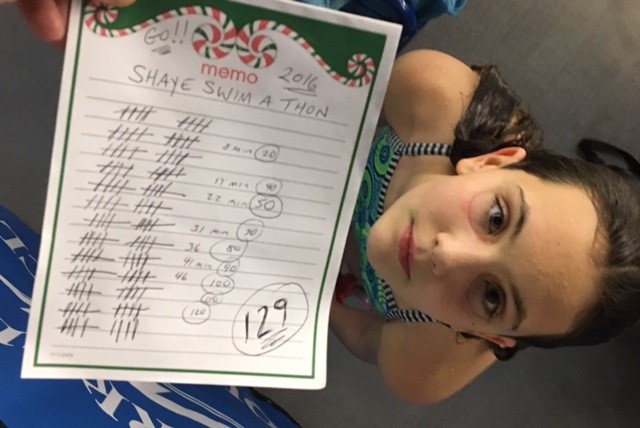 GO!!
memo
2016
SHAYE SWIM A THON
8 min 20
17 min 40
22 min 50
31 min 70
36 80
41 min 90
46 100
110
120
129